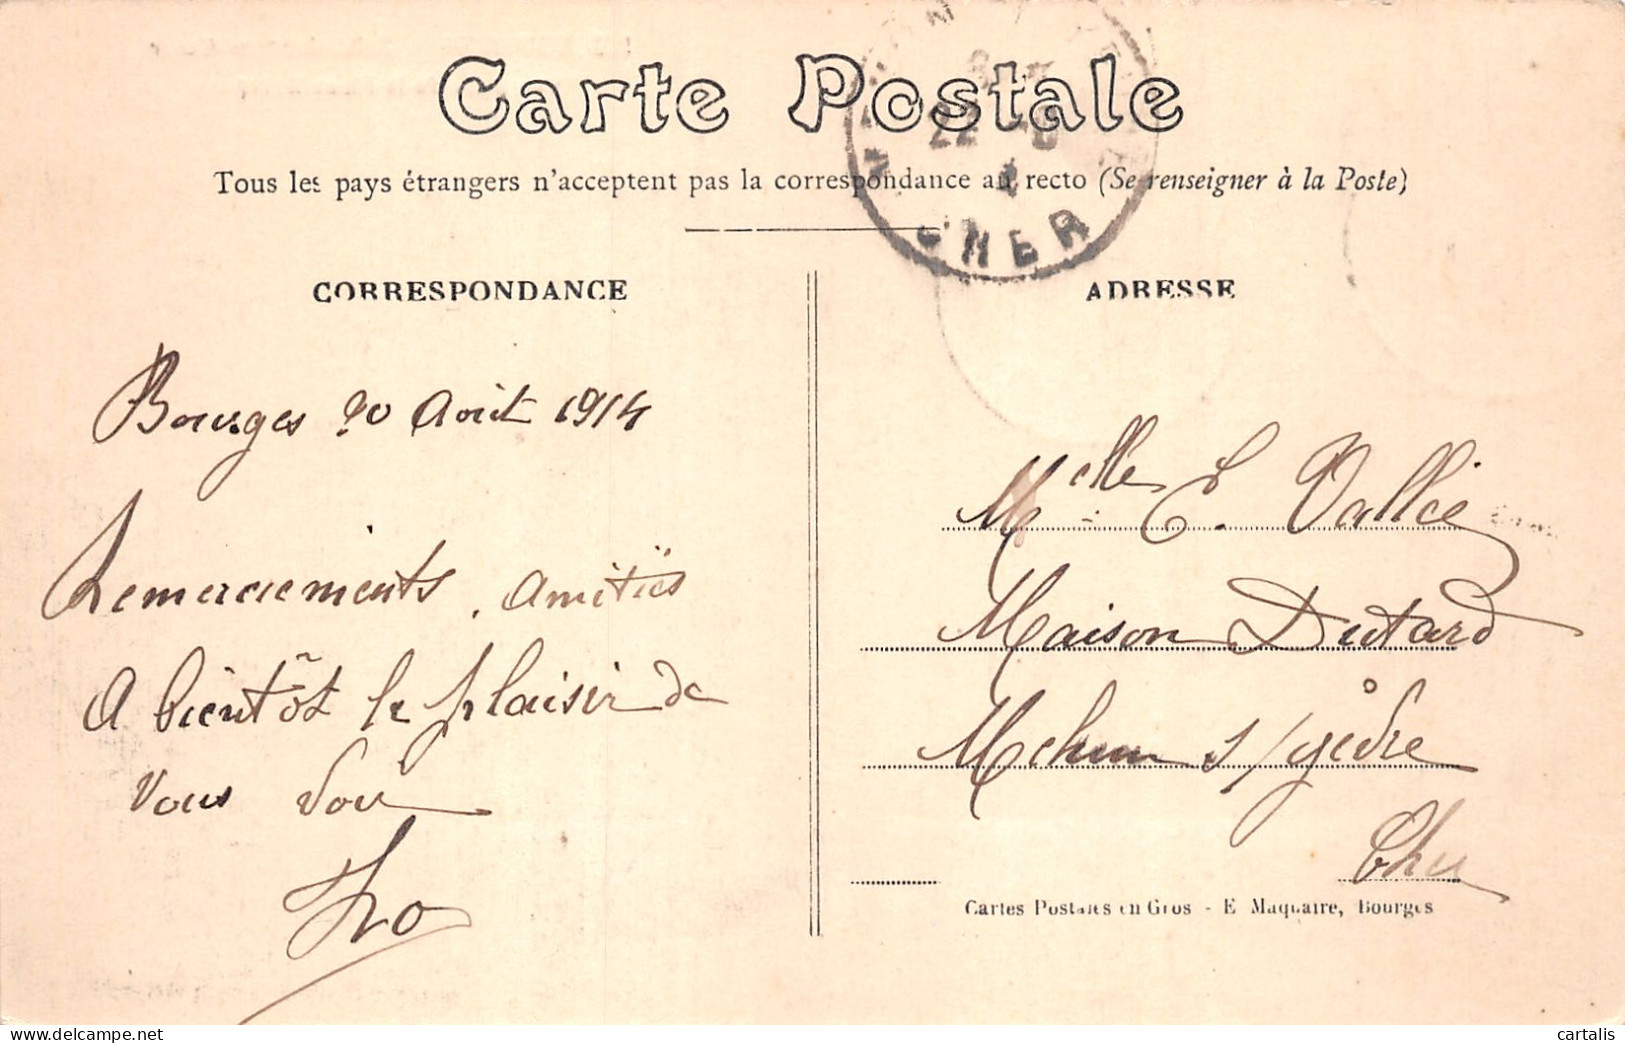 Carte Postale
Tous les pays étrangers n'acceptent pas la correspondance au recto (Se renseigner à la Poste)
CHER
CORRESPONDANCE
Bourges 20 Août 1914
Remerciements, amitiés
A bientôt le plaisir de
vous voir
ADRESSE
Melle E. Vallée
Maison Dutard
Mehun s/yèvre
Cher
Cartes Postales en Gros - E Maquaire, Bourges
cartalis